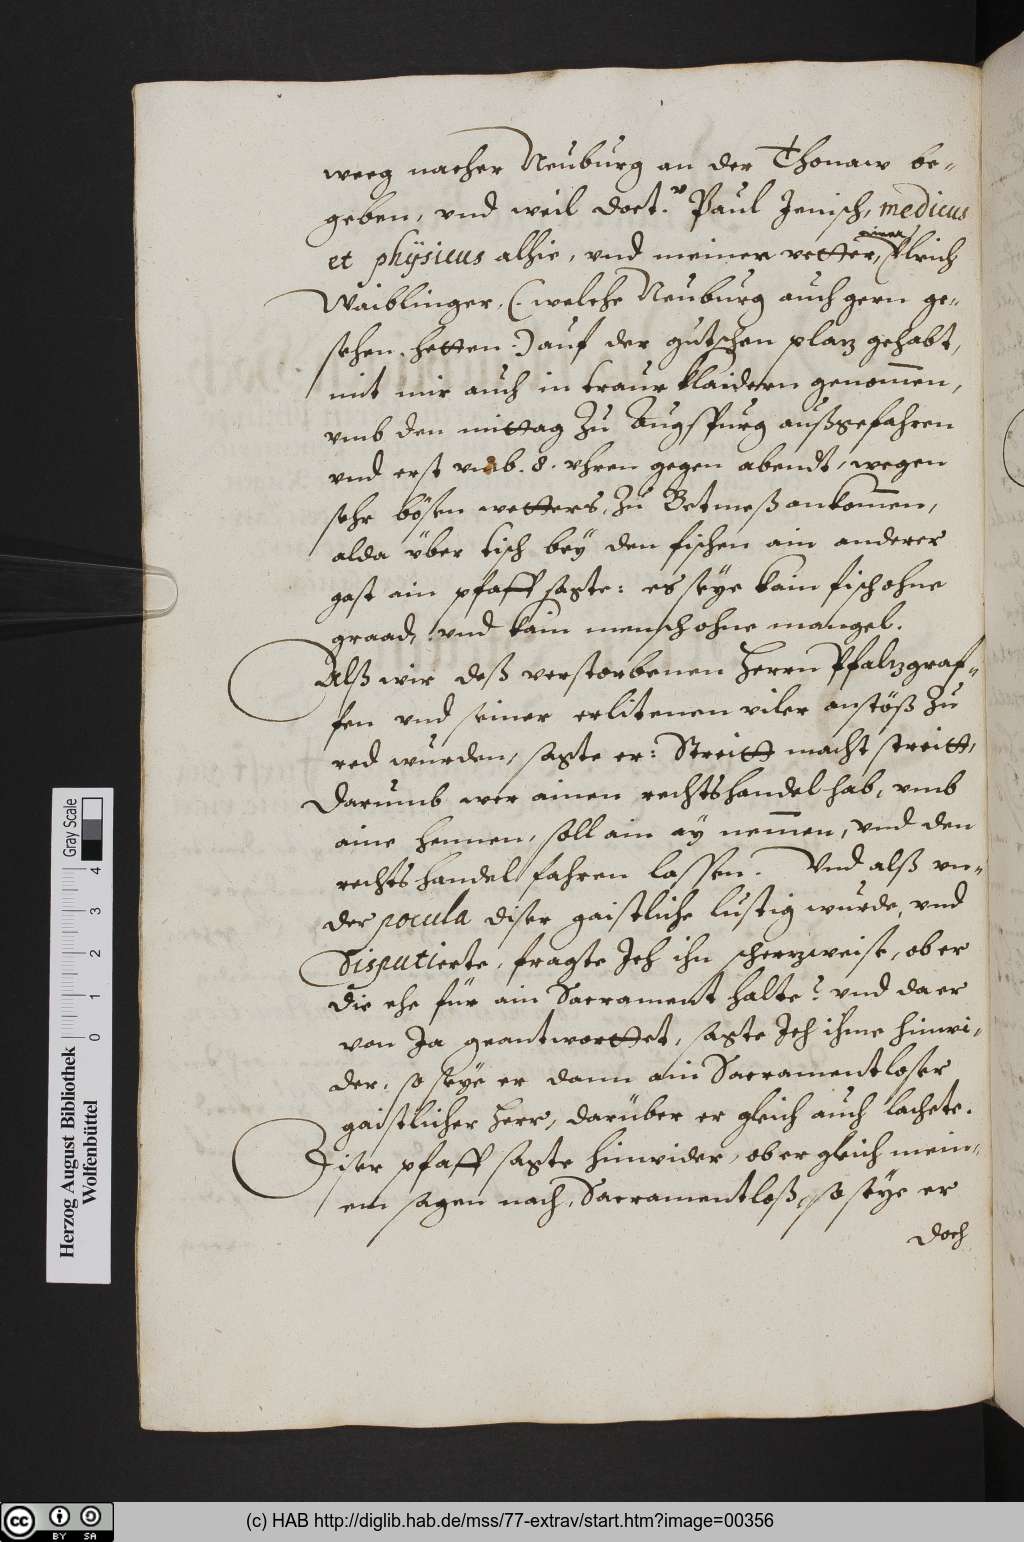 weeg nacher Neuburg an der Thonaw be-
geben, vnd weil doct.r Paul Jenisch, medicus
et phÿsicus alhie, vnd meiner vetter, einer Vlrich
Waiblinger, (: welche Neuburg auch gern ge-
sehen hetten :) auf der gutschen plaz gehabt,
mit mir auch in traur klaidern genom̄en,
vmb den mittag zu Augspurg außgefahren
vnd erst vmb. 8. vhren gegen abendt, wegen
sehr bösen wetters, zu Betmeß ankom̄en,
alda über tisch beÿ den fischen ain anderer
gast ain pfaff sagte: es seÿe kain fisch ohne
graad, vnd kain mensch ohne mangel.
Alß wir deß verstorbenen Herrn Pfalzgraf-
fen vnd seiner erlitenen viler anstöß zu
red wurden, sagte er: Streitt macht streitt,
darumb wer ainen rechtshandel hab, vmb
aine hennen, soll ain aÿ nem̄en, vnd den
rechtshandel fahren lassen. Vnd alß vn-
der pocula diser gaistliche lustig wurde, vnd
disputierte, fragte Ich ihn scherzweise, ob er
die ehe für ain Sacrament halte? vnd da er
von Ja geantworttet, sagte Ich ihme hinwi-
der, so seÿe er dann ain Sacramentloser
gaistlicher Herr, darüber er gleich auch lachete.
Diser pfaff sagte hinwider, ob er gleich mein-
em sagen nach, Sacramentloß, so seÿe er
doch
Herzog August Bibliothek
Wolfenbüttel
0 1 2 3 4
Gray Scale
cc BY SA
(c) HAB http://diglib.hab.de/mss/77-extrav/start.htm?image=00356